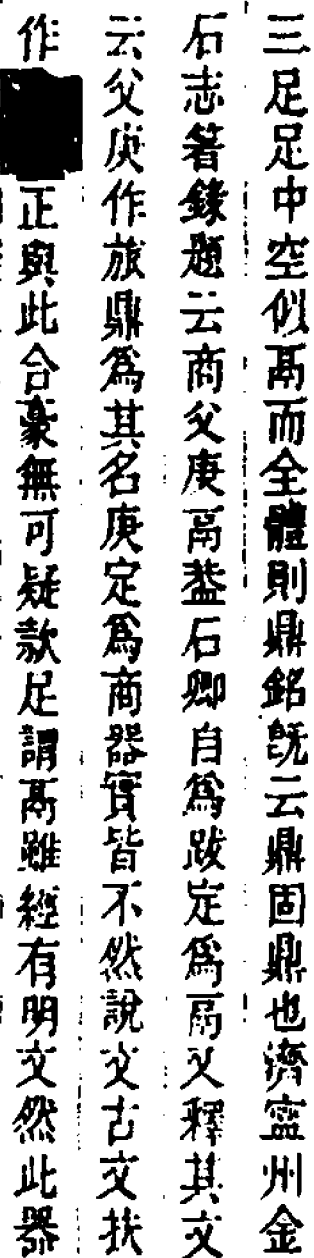 三足足中空似鬲而全體則鼎銘既云鼎固鼎也濟寍州金
石志箸錄題云商父庚鬲葢石卿自爲跋定爲鬲又釋其文
云父庚作旅鼎爲其名庚定爲商器實皆不然說文古文㧞
作正與此合豪無可疑款足謂鬲雖經有明文然此器